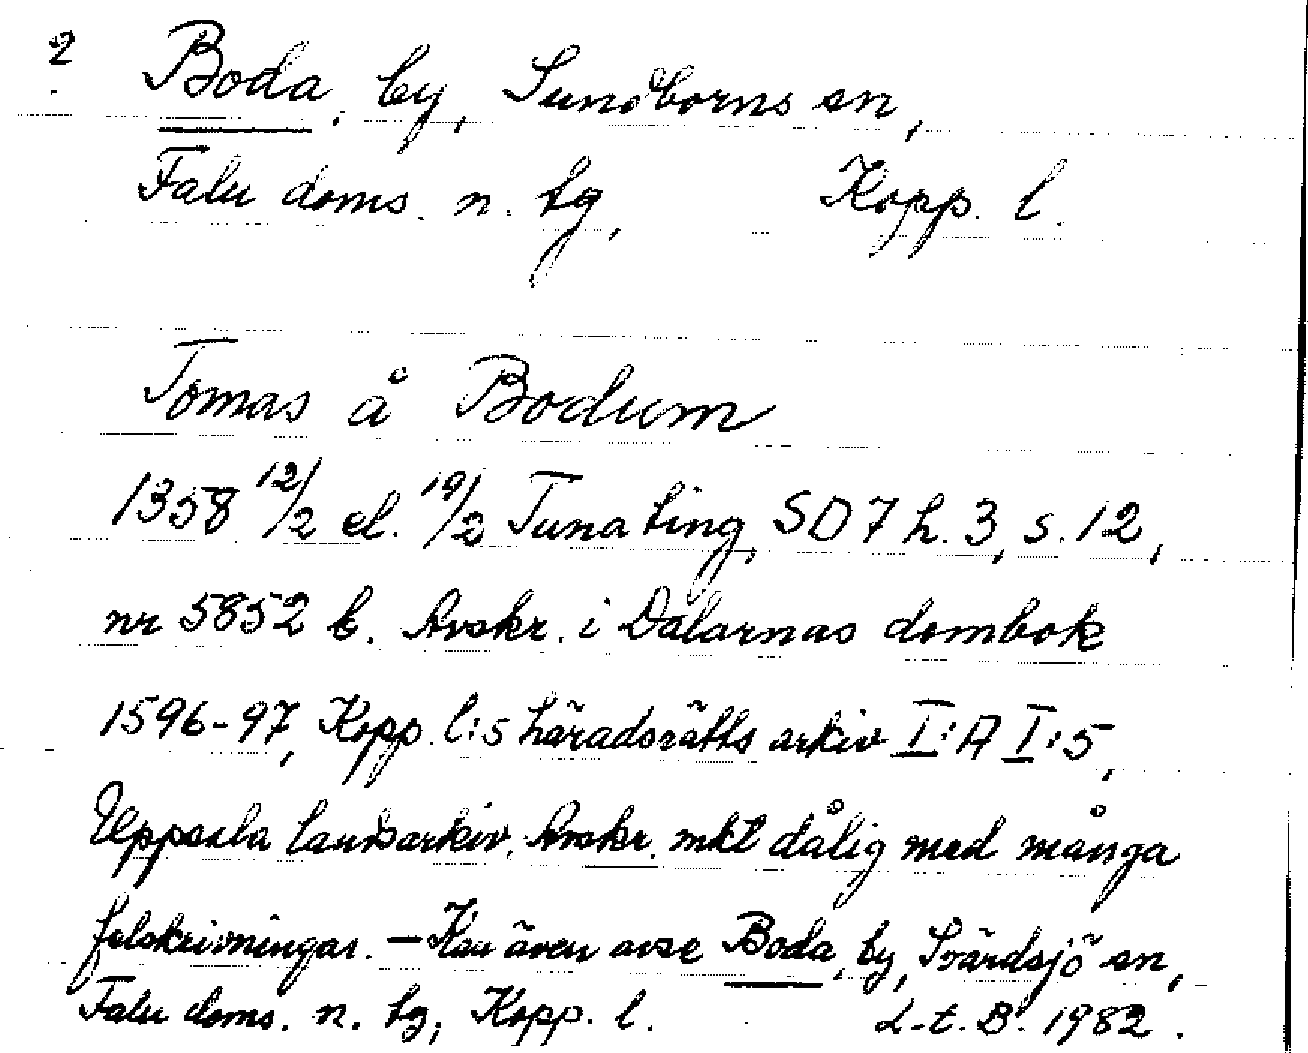 2 Boda, by, Sundborns sn,
Falu doms. n. tg, Kopp. l.
Tomas å Bodum
1358 12/2 el. 19/2 Tuna ting, SD 7 h. 3, s. 12,
nr 5852 b. Avskr. i Dalarnas dombok
1596-97, Kopp. l:s häradsrätts arkiv I:A I:5,
Uppsala landsarkiv. Avskr. mkt dålig med många
felskrivningar. – Kan även avse Boda, by, Svärdsjö sn,
Falu doms. n. tg, Kopp. l. L-t. B. 1982.